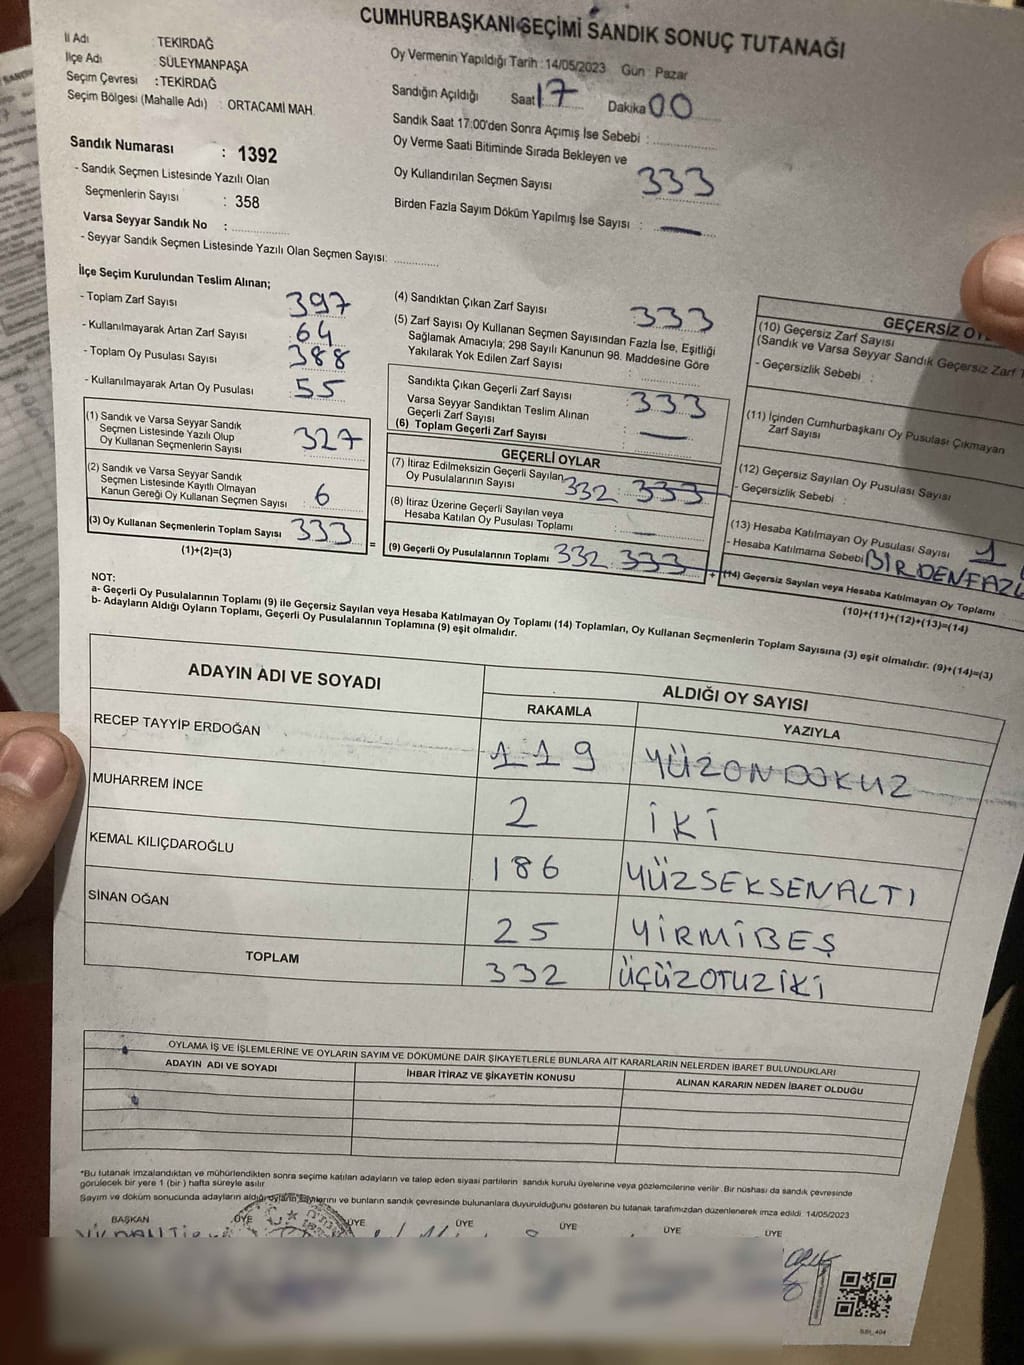 CUMHURBAŞKANI SEÇİMİ SANDIK SONUÇ TUTANAĞI
İl Adı TEKİRDAĞ
İlçe Adı SÜLEYMANPAŞA
Seçim Çevresi : TEKİRDAĞ
Seçim Bölgesi (Mahalle Adı) : ORTACAMİ MAH.
Oy Vermenin Yapıldığı Tarih : 14/05/2023 Gün : Pazar
Sandığın Açıldığı Saat 17 Dakika 00
Sandık Saat 17:00'den Sonra Açımış İse Sebebi :
Oy Verme Saati Bitiminde Sırada Bekleyen ve
Oy Kullandırılan Seçmen Sayısı 333
Birden Fazla Sayım Döküm Yapılmış İse Sayısı : —
Sandık Numarası : 1392
- Sandık Seçmen Listesinde Yazılı Olan
Seçmenlerin Sayısı : 358
Varsa Seyyar Sandık No :
- Seyyar Sandık Seçmen Listesinde Yazılı Olan Seçmen Sayısı:
İlçe Seçim Kurulundan Teslim Alınan;
- Toplam Zarf Sayısı 397
- Kullanılmayarak Artan Zarf Sayısı 64
- Toplam Oy Pusulası Sayısı 388
- Kullanılmayarak Artan Oy Pusulası 55
(1) Sandık ve Varsa Seyyar Sandık
Seçmen Listesinde Yazılı Olup
Oy Kullanan Seçmenlerin Sayısı 327
(2) Sandık ve Varsa Seyyar Sandık
Seçmen Listesinde Kayıtlı Olmayan
Kanun Gereği Oy Kullanan Seçmen Sayısı : 6
(3) Oy Kullanan Seçmenlerin Toplam Sayısı 333 =
(1)+(2)=(3)
(4) Sandıktan Çıkan Zarf Sayısı 333
(5) Zarf Sayısı Oy Kullanan Seçmen Sayısından Fazla İse, Eşitliği
Sağlamak Amacıyla; 298 Sayılı Kanunun 98. Maddesine Göre
Yakılarak Yok Edilen Zarf Sayısı :
Sandıkta Çıkan Geçerli Zarf Sayısı : 333
Varsa Seyyar Sandıktan Teslim Alınan
Geçerli Zarf Sayısı : —
(6) Toplam Geçerli Zarf Sayısı :
GEÇERLİ OYLAR
(7) İtiraz Edilmeksizin Geçerli Sayılan
Oy Pusulalarının Sayısı 332 : 333
(8) İtiraz Üzerine Geçerli Sayılan veya
Hesaba Katılan Oy Pusulası Toplamı : —
(9) Geçerli Oy Pusulalarının Toplamı 332 333 +
GEÇERSİZ
(10) Geçersiz Zarf Sayısı
(Sandık ve Varsa Seyyar Sandık Geçersiz Zarf
- Geçersizlik Sebebi :
(11) İçinden Cumhurbaşkanı Oy Pusulası Çıkmayan
Zarf Sayısı
(12) Geçersiz Sayılan Oy Pusulası Sayısı
- Geçersizlik Sebebi :
(13) Hesaba Katılmayan Oy Pusulası Sayısı 1
- Hesaba Katılmama Sebebi BİRDENFAZL
(14) Geçersiz Sayılan veya Hesaba Katılmayan Oy Toplamı
(10)+(11)+(12)+(13)=(14)
NOT:
a- Geçerli Oy Pusulalarının Toplamı (9) ile Geçersiz Sayılan veya Hesaba Katılmayan Oy Toplamı (14) Toplamları, Oy Kullanan Seçmenlerin Toplam Sayısına (3) eşit olmalıdır. (9)+(14)=(3)
b- Adayların Aldığı Oyların Toplamı, Geçerli Oy Pusulalarının Toplamına (9) eşit olmalıdır.
ADAYIN ADI VE SOYADI ALDIĞI OY SAYISI
RAKAMLA YAZIYLA
RECEP TAYYİP ERDOĞAN 119 YÜZONDOKUZ
MUHARREM İNCE 2 İKİ
KEMAL KILIÇDAROĞLU 186 YÜZSEKSENALTI
SİNAN OĞAN 25 YİRMİBEŞ
TOPLAM 332 ÜÇÜZOTUZİKİ
OYLAMA İŞ VE İŞLEMLERİNE VE OYLARIN SAYIM VE DÖKÜMÜNE DAİR ŞİKAYETLERLE BUNLARA AİT KARARLARIN NELERDEN İBARET BULUNDUKLARI
ADAYIN ADI VE SOYADI İHBAR İTİRAZ VE ŞİKAYETİN KONUSU ALINAN KARARIN NEDEN İBARET OLDUĞU
*Bu tutanak imzalandıktan ve mühürlendikten sonra seçime katılan adayların ve talep eden siyasi partilerin sandık kurulu üyelerine veya gözlemcilerine verilir. Bir nüshası da sandık çevresinde
görülecek bir yere 1 (bir) hafta süreyle asılır
Sayım ve döküm sonucunda adayların aldığı oyların sayılarını ve bunların sandık çevresinde bulunanlara duyurulduğunu gösteren bu tutanak tarafımızdan düzenlenerek imza edildi. 14/05/2023
BAŞKAN ÜYE ÜYE ÜYE ÜYE ÜYE ÜYE